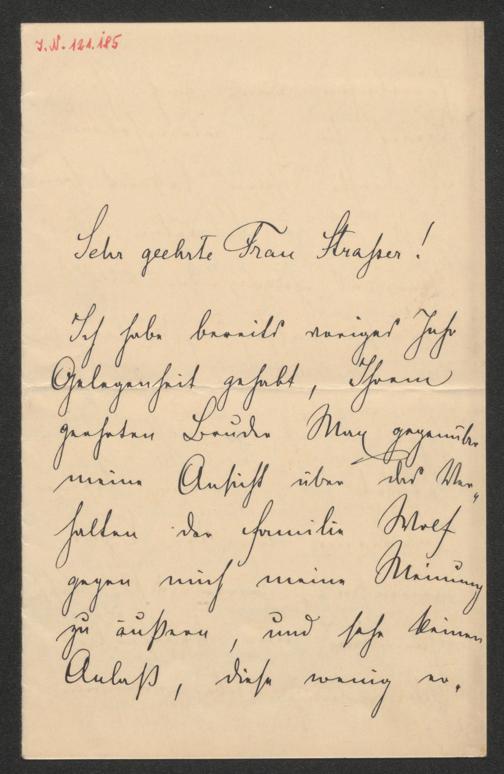 I.N. 121.185
Sehr geehrte Frau Straßer!
Ich habe bereits voriges Jahr
Gelegenheit gehabt, Ihrem
geehrten Bruder Max gegenüber
meine Ansicht über das Ver-
halten der Familie Wolf
gegen mich meine Meinung
zu äußern, und sehe keinen
Anlaß, diese wenig er-